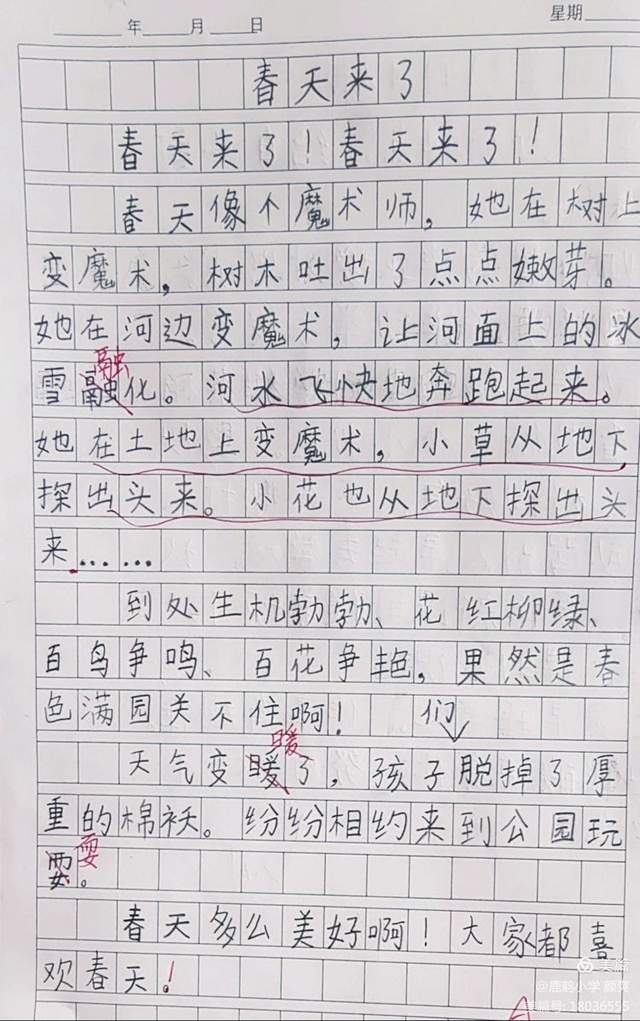 年 月 日 星期
春天来了
春天来了！春天来了！
春天像个魔术师，她在树上
变魔术，树木吐出了点点嫩芽。
她在河边变魔术，让河面上的冰
融
雪融化。河水飞快地奔跑起来。
她在土地上变魔术，小草从地下
探出头来。小花也从地下探出头
来……
到处生机勃勃、花红柳绿、
百鸟争鸣、百花争艳，果然是春
色满园关不住啊！
们
暖
天气变暖了，孩子脱掉了厚
重的棉袄。纷纷相约来到公园玩
耍
耍。
春天多么美好啊！大家都喜
欢春天！
美篇
@鹿鹤小学 颜爽
美篇号: 18036555